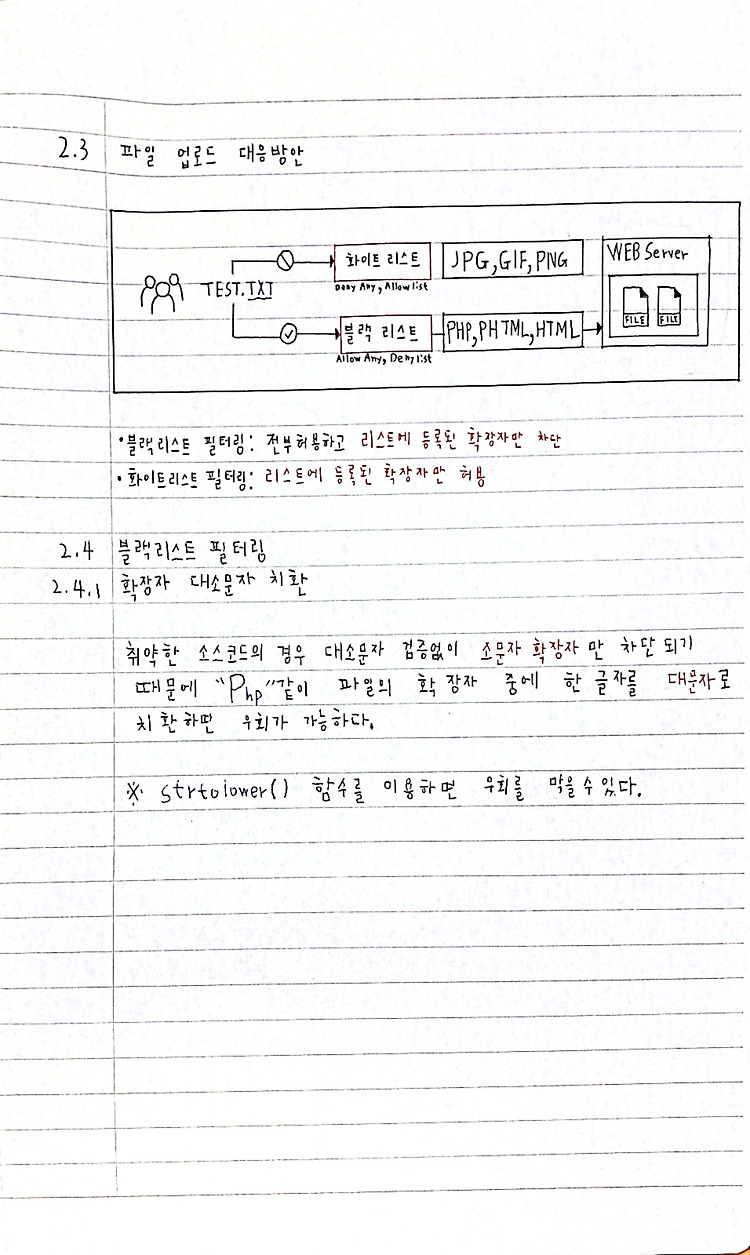 2.3 파일 업로드 대응방안
TEST.TXT
화이트 리스트
Deny Any, Allow list
JPG,GIF,PNG
WEB Server
FILE FILE
블랙 리스트
Allow Any, Deny list
PHP,PHTML,HTML
• 블랙리스트 필터링: 전부허용하고 리스트에 등록된 확장자만 차단
• 화이트리스트 필터링: 리스트에 등록된 확장자만 허용
2.4 블랙리스트 필터링
2.4.1 확장자 대소문자 치환
취약한 소스코드의 경우 대소문자 검증없이 소문자 확장자만 차단 되기
때문에 "Php"같이 파일의 확장자 중에 한 글자를 대문자로
치환하면 우회가 가능하다.
※ strtolower() 함수를 이용하면 우회를 막을수있다.